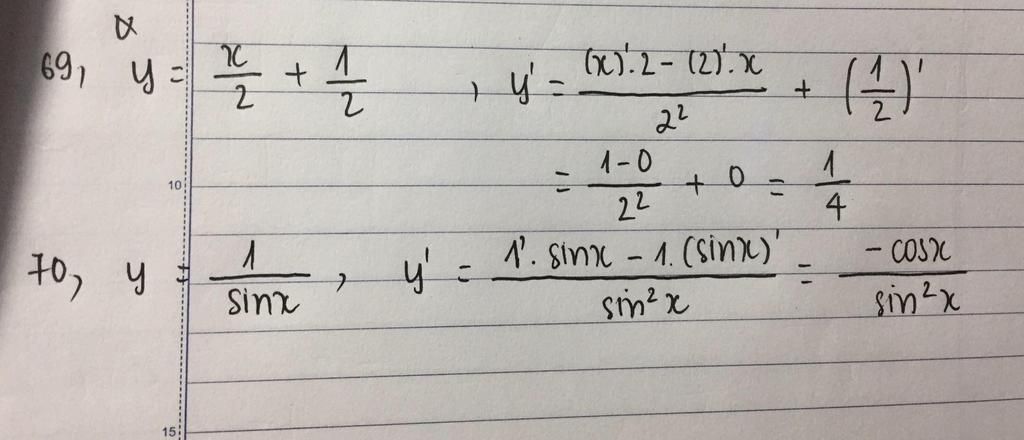 α
69, y = x/2 + 1/2 , y' = ((x)'.2 - (2)'.x)/2² + (1/2)'
10 = (1-0)/2² + 0 = 1/4
70, y = 1/sinx , y' = (1'. sinx - 1.(sinx)')/sin²x = -cosx/sin²x
15